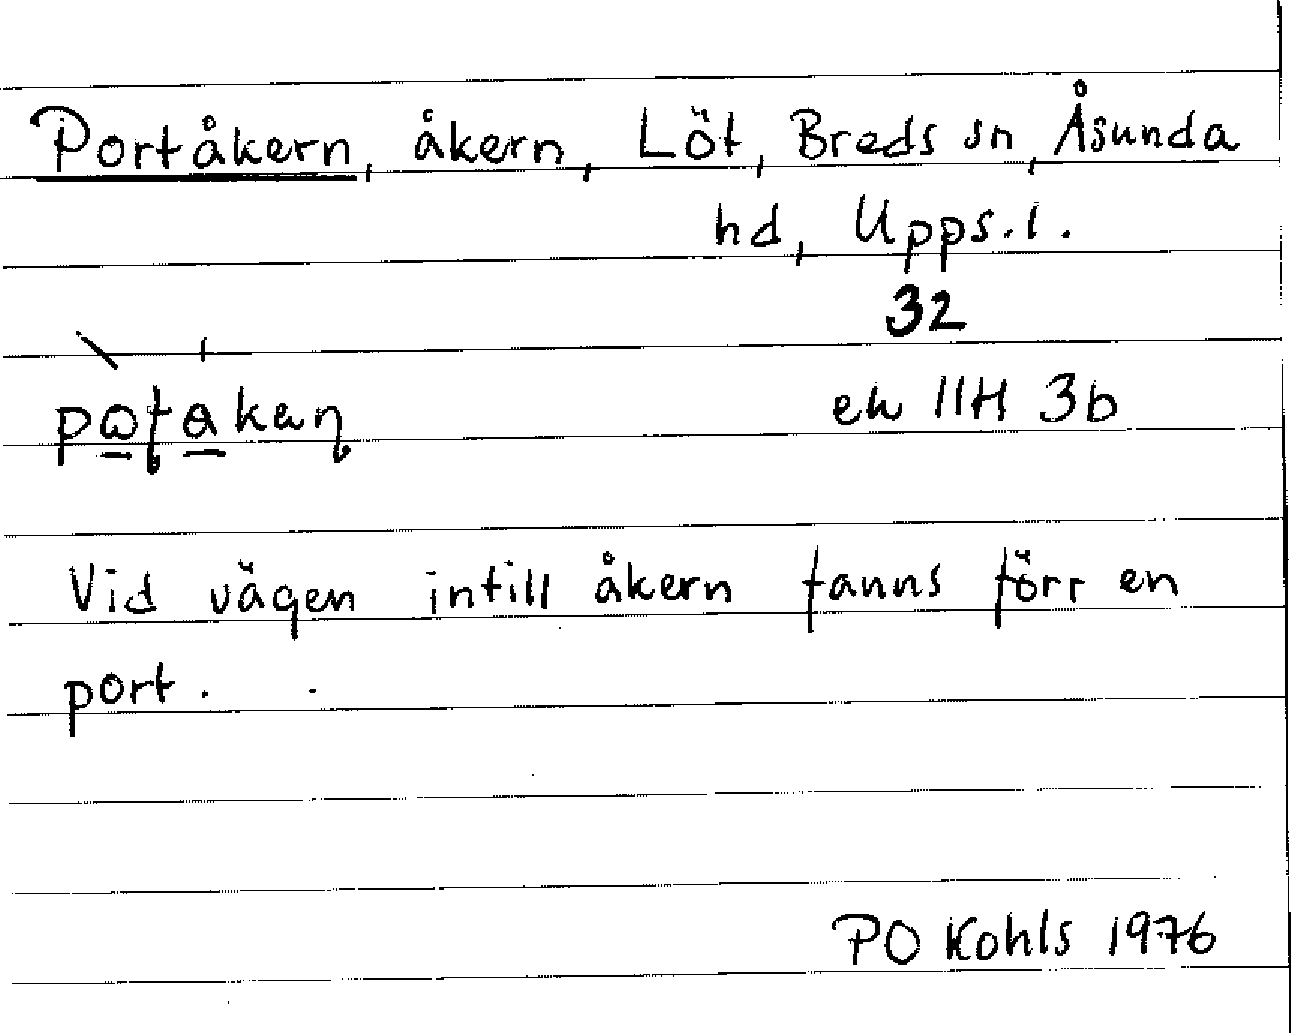 Portåkern, åkern, Löt, Breds sn, Åsunda
hd, Upps.l.
32
ek 11H 3b
Vid vägen intill åkern fanns förr en
port.
PO Kohls 1976